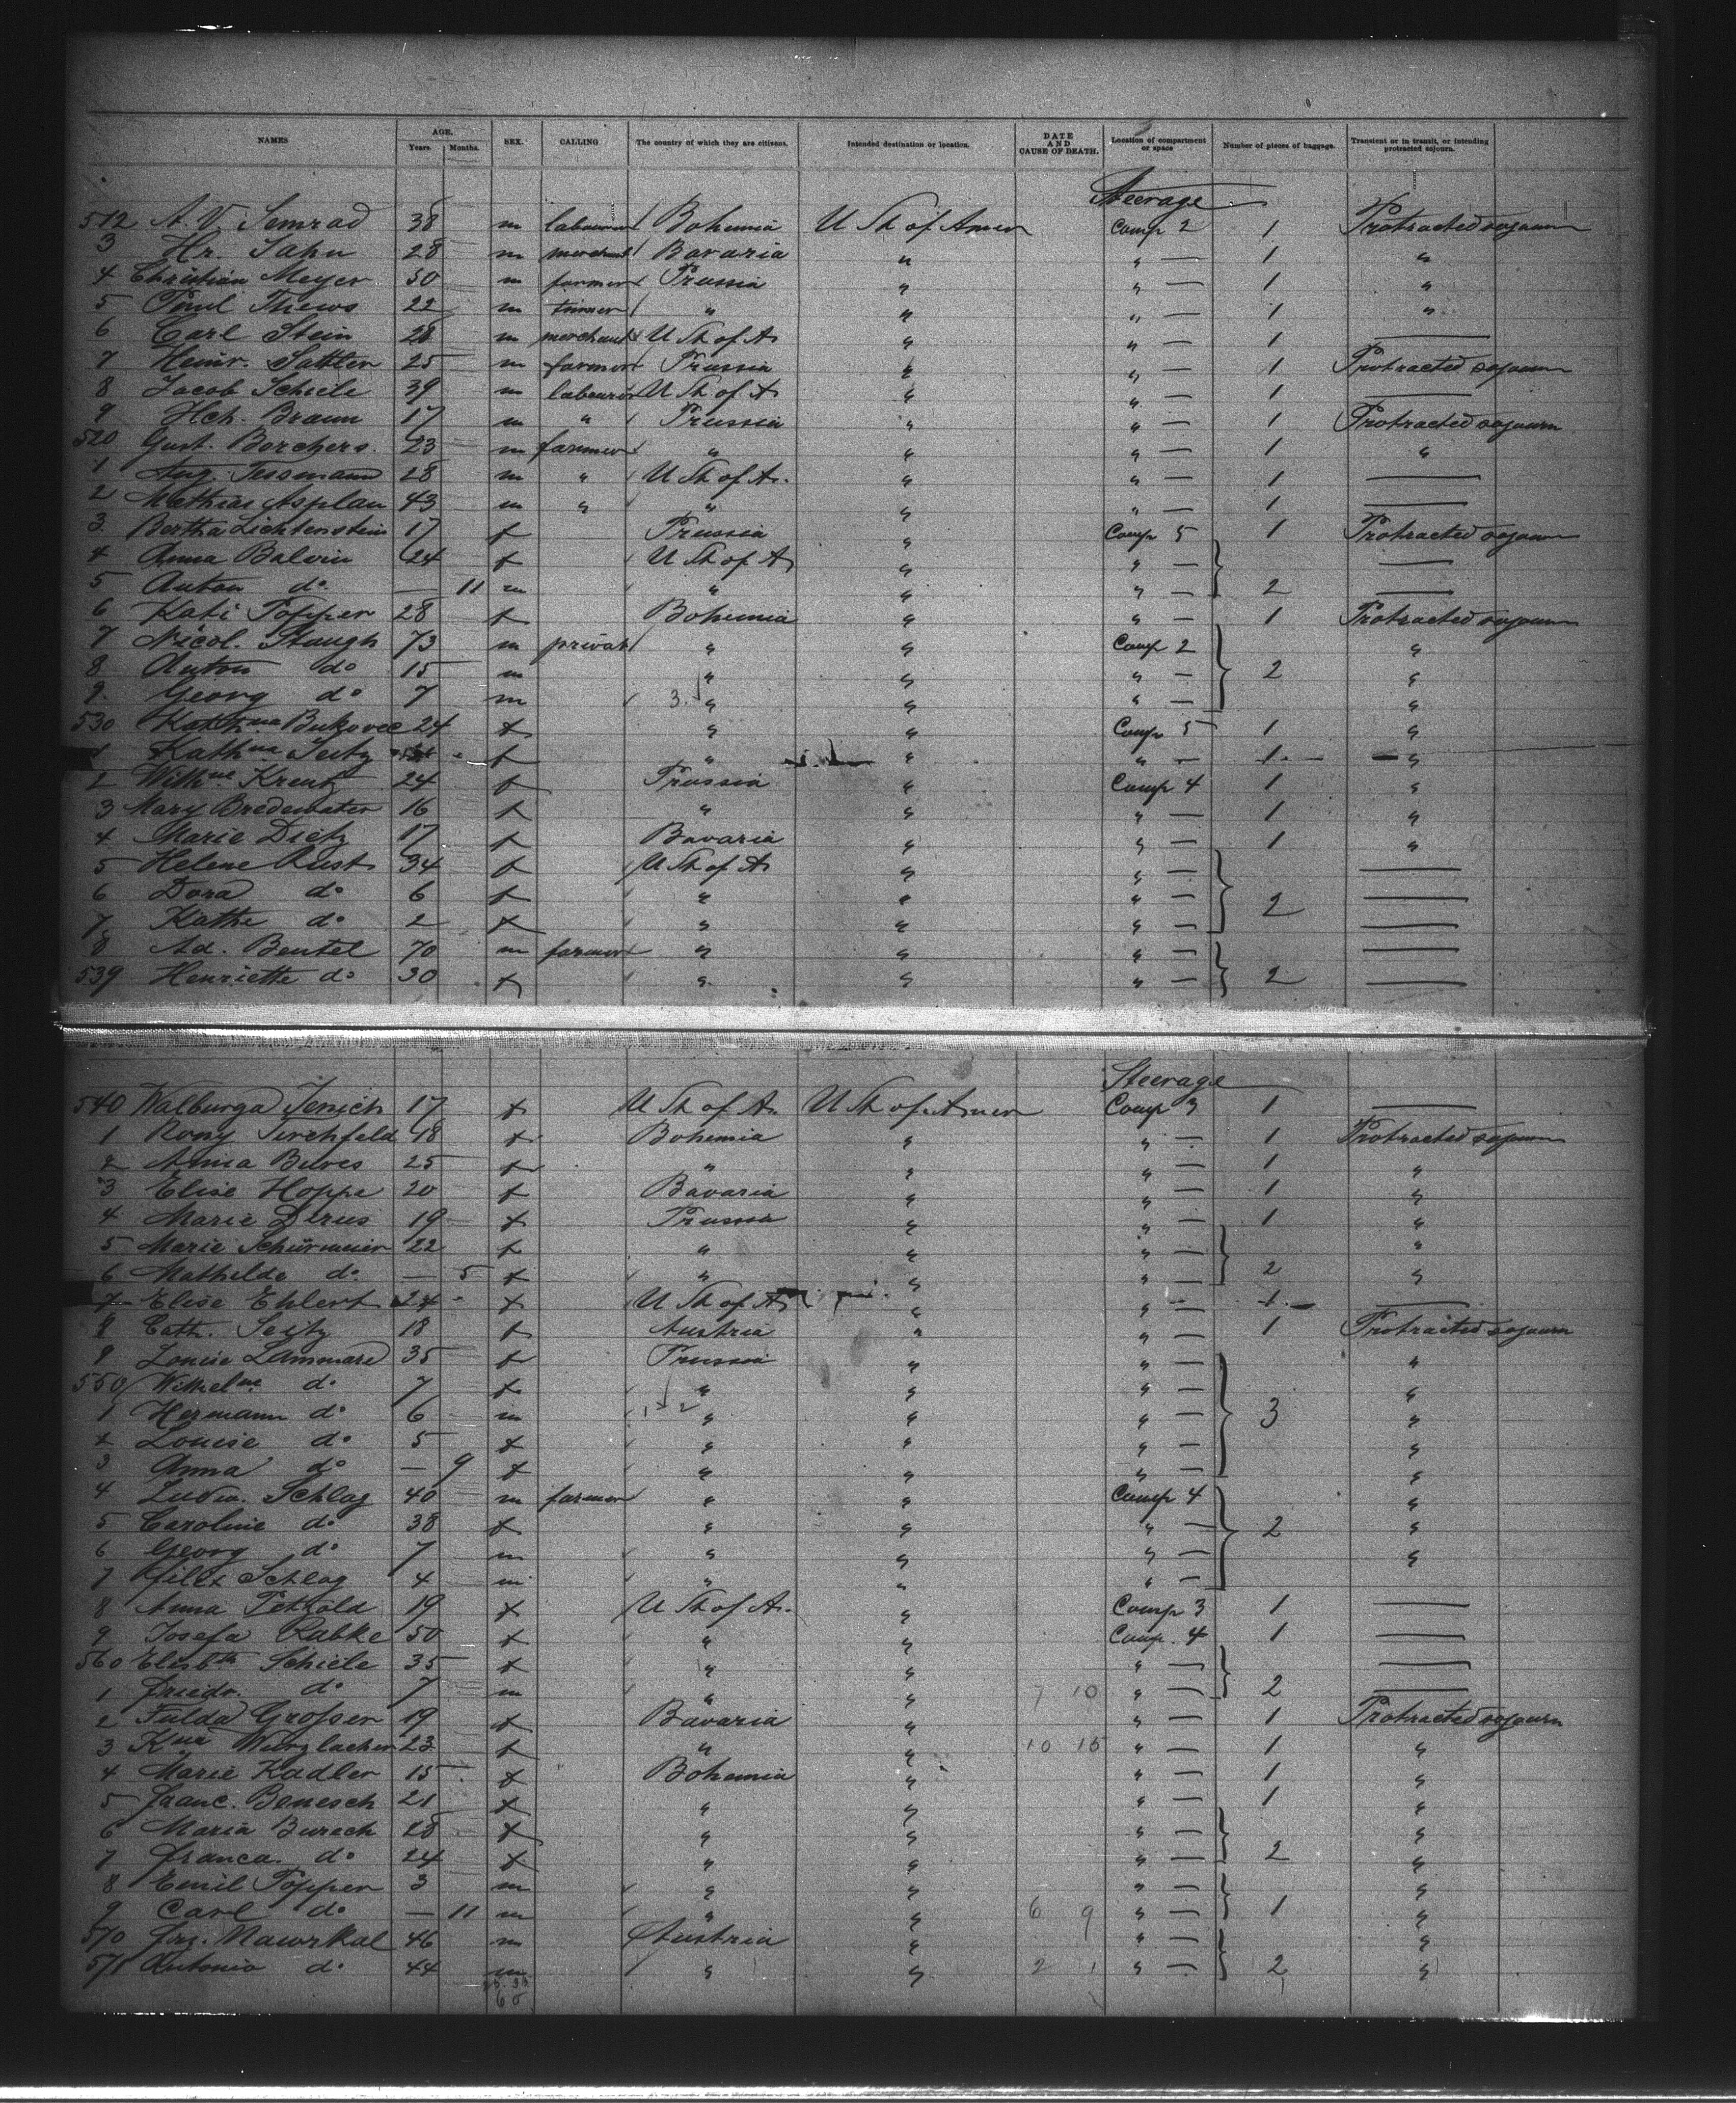 NAMES AGE. Years. Months. SEX. CALLING The country of which they are citizens. Intended destination or location. DATE AND CAUSE OF DEATH. Location of compartment or space Number of pieces of baggage. Transient or in transit, or intending protracted sojourn.
Steerage
512 A. V Semrad 38 m labourer Bohemia U St of Amer Comp 2 1 Protracted sojourn
3 Hr. Sahn 28 m merchant Bavaria " " — 1 "
4 Christian Meyer 30 m farmer Prussia " " — 1 "
5 Paul Thews 22 m turner " " " — 1 "
6 Carl Stein 28 m merchant U St of A " " — 1 —
7 Heinr. Sattler 25 m farmer Prussia " " — 1 Protracted sojourn
8 Jacob Schiele 39 m labourer U St of A " " — 1 —
9 Hch. Braun 17 m " Prussia " " — 1 Protracted sojourn
520 Gust. Borchers. 23 m farmer " " " — 1 "
1 Aug. Jessmann 28 m " U St of A. " " — 1 —
2 Mathias Asplan 43 m " " " " — 1 —
3. Bertha Lichtenstein 17 f Prussia " Comp 5 1 Protracted sojourn
4 Anna Balvin 24 f U St of A " " — —
5 Anton do — 11 m " " " — 2 —
6 Kati Popper 28 f Bohemia " " — 1 Protracted sojourn
7 Nicol. Staugh 73 m privat " " Comp 2 "
8 Anton do 15 m " " " — 2 "
9. Georg do 7 m 3. " " " — "
530 Kathna Bukovec 24 f " " Comp 5 1 "
1 Kathna Seitz f " " " — 1 "
2 Wilhne Kreutz 24 f Prussia " Comp 4 1 "
3 Mary Bredewater 16 f " " " — 1 "
4 Marie Dietz 17 f Bavaria " " — 1 "
5 Helene Rust 34 f U St of A " " — —
6 Dora do 6 f " " " — 2 —
7 Kathe do 2 f " " " — —
8 Ad. Beutel 70 m farmer " " " — —
539 Henriette do 30 f " " " — 2 —
Steerage
540 Walburga Jenich 17 f U St of A. U St of Amer Comp 3 1 —
1 Rosy Hirchfeld 18 f Bohemia " " — 1 Protracted sojourn
2 Anna Bures 25 f " " " — 1 "
3 Elise Hoppe 20 f Bavaria " " — 1 "
4 Marie Dirus 19 f Prussia " " — 1 "
5 Marie Schürmeier 22 f " " " — "
6 Mathilde do. — 5 f " " " — 2 "
7 Elise Ehlert 24 f U St of A " " — 1 —
8 Cath. Seitz 18 f Austria " " — 1 Protracted sojourn
9 Louise 35 f Prussia " " — "
550 Wilhelme do 7 f " " " — "
1 Hermann do 6 m 1 2 " " " — 3 "
2 Louise do 5 f " " " — "
3 Anna do — 9 f " " " — "
4 Ludw. Schlag 40 m farmer " " Comp 4 "
5 Caroline do 38 f " " " — 2 "
6 Georg do 7 m " " " — "
7 Schlag 4 m " " " —
8 Anna Petzold 19 f U St of A. " Comp 3 1 —
9 Josefa Rabke 50 f " " Comp. 4 1 —
560 Elisbth Schiele 35 f " " " — —
1 Friedr. do 7 m " " 7 10 " — 2 —
2 Fulda Grosser 19 f Bavaria " " — 1 Protracted sojourn
3 Kna Wurzlacher 23 f " " 10 15 " — 1 "
4 Marie Kadler 15 f Bohemia " " — 1 "
5 Franc. Benesch 21 f " " " — 1 "
6 Maria Burech 28 f " " " — "
7 Franca. do 24 f " " " — 2 "
8 Emil Popper 3 m " " " — "
9 Carl do — 11 m " " 6 9 " — 1 "
570 Frz. Nawrkal 46 m Austria " " — "
571 Antonio do 44 m " " 2 1 " — 2 "